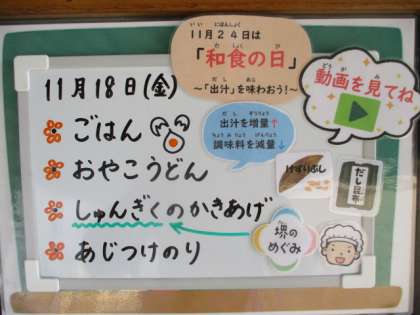 11月24日は
「和食の日」
～「出汁」を味わおう！～
11月18日(金)
動画を見てね
ごはん
おやこうどん
しゅんぎくのかきあげ
あじつけのり
出汁を増量↑
調味料を減量↓
けずりぶし
だし昆布
堺の
めぐみ